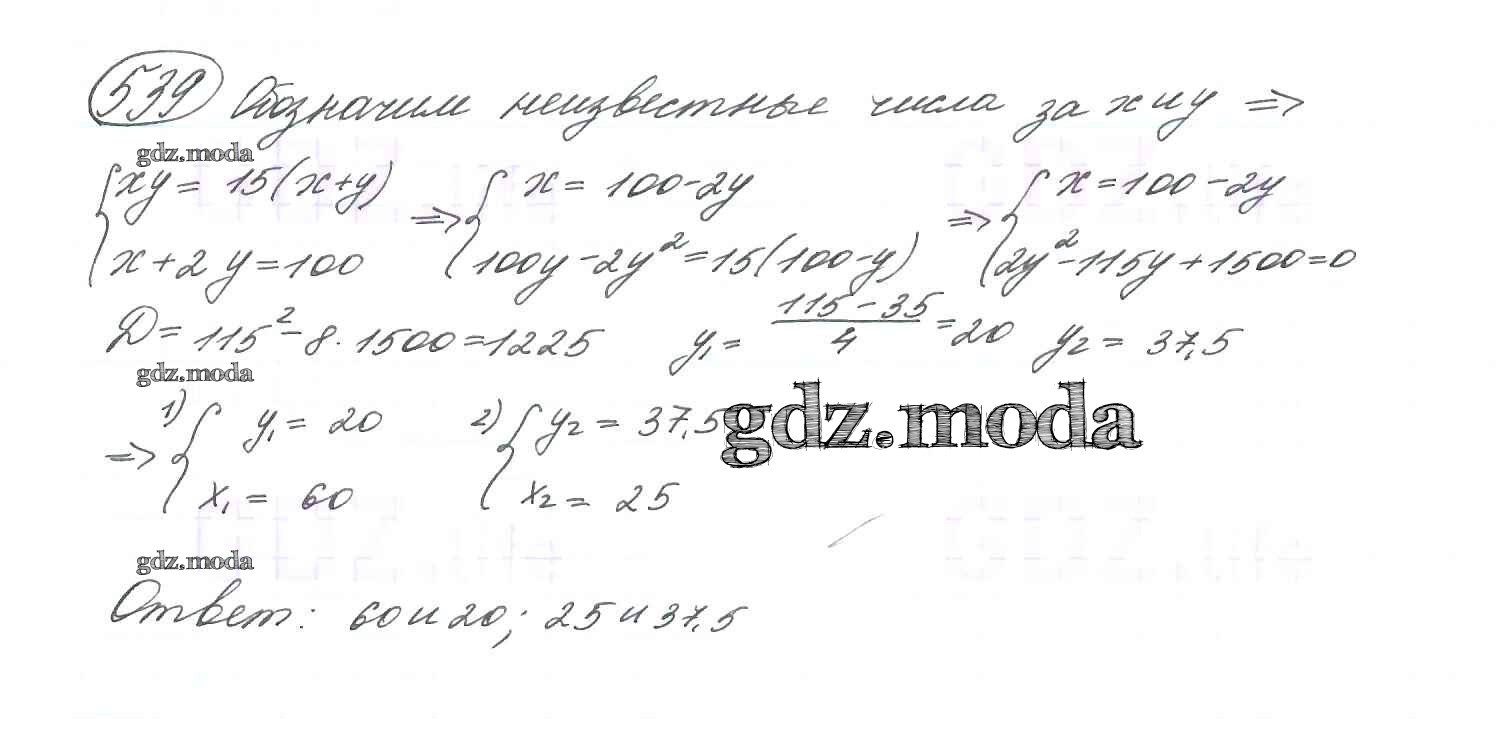 539 Обозначим неизвестные числа за x и y =>
gdz.moda
{xy = 15(x+y) => {x = 100-2y => {x = 100-2y
{x+2y=100 {100y-2y²=15(100-y) {2y²-115y+1500=0
D = 115²-8·1500=1225 y₁ = (115-35)/4 = 20 y₂ = 37,5
gdz.moda
=> 1) {y₁ = 20 2) {y₂ = 37,5
gdz.moda
{x₁ = 60 {x₂ = 25
gdz.moda
Ответ: 60 и 20; 25 и 37,5